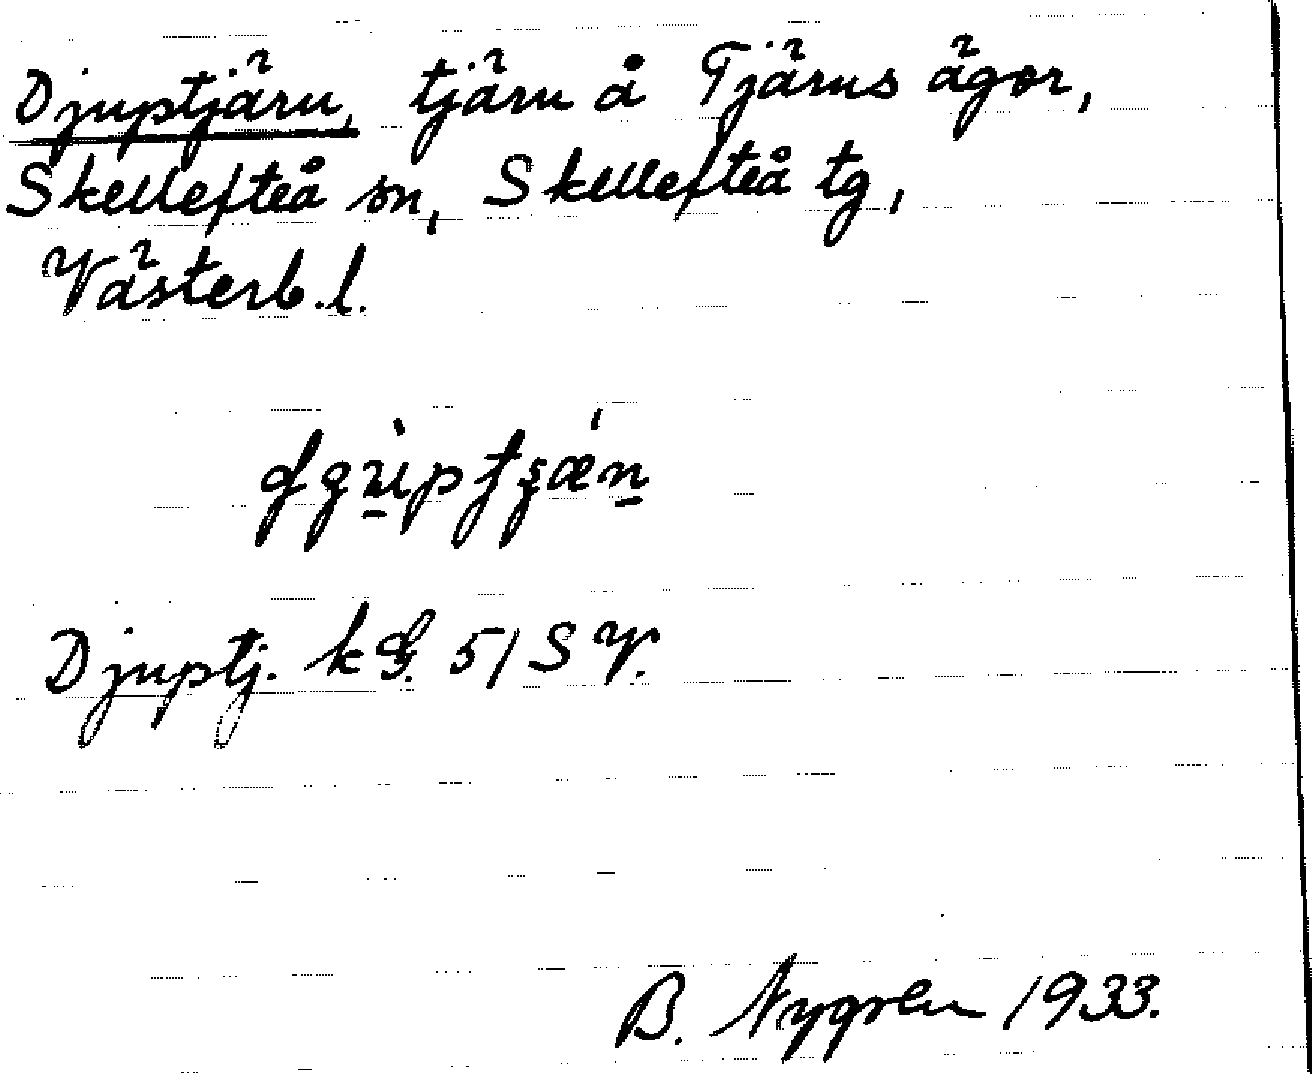 Djuptjärn, tjärn å Tjärns ägor,
Skellefteå sn, Skellefteå tg,
Västerb. l.
Djuptj. k G. 51 S V.
B. Nygren 1933.